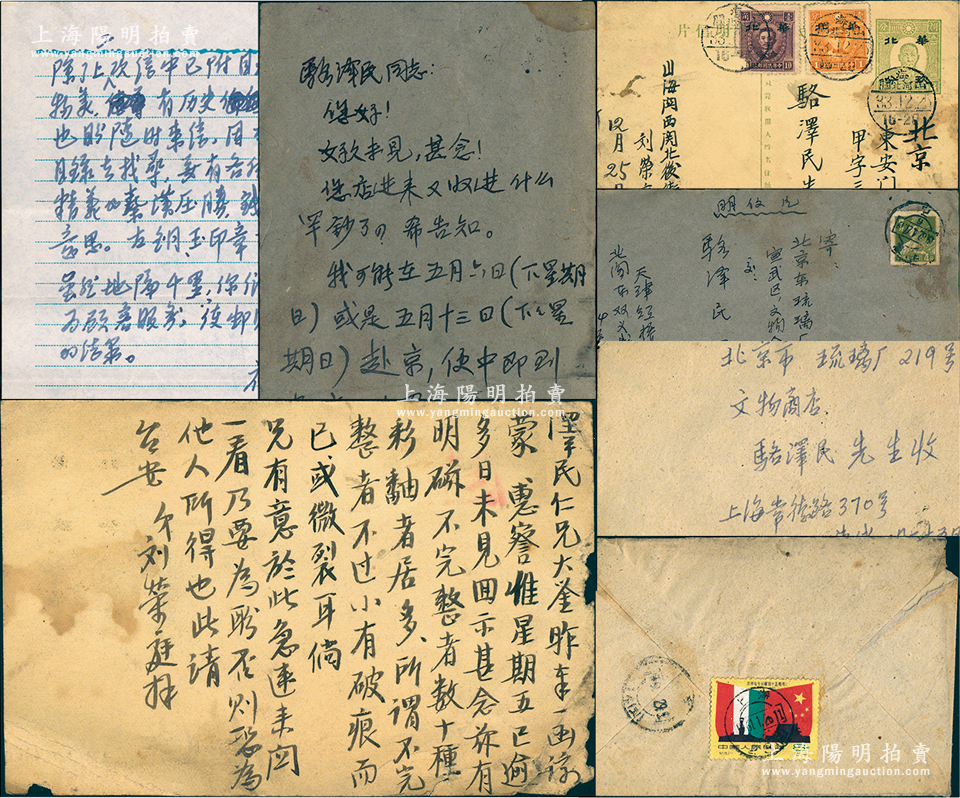 上海陽明拍賣
www.yangmingauction.com
除了上次信中已附目
也盼随时来信。因
目錄去找尋,要有各种
精美的秦漢压勝、
意思。古銅、玉印章
虽然地隔千里,你们
的结果。
駱泽民同志:
您好!
好久未见,甚念!
您店进来又收进什么
罕鈔了？希告知。
我可能在五月六日(下星期
日)或是五月十三日(下下星
期日)赴京,便中即到
片信明
華北
駱澤民
北京
東安門
甲字三
山海関西関北後街
刘榮
12月25日
明信片
寄:
北京市琉璃
宣武区文物
駱澤民
天津
北京市 琉璃厂 219号
文物商店
駱澤民 先生收
上海常德路370号
澤民仁兄大鉴昨奉一函諒
蒙惠詧惟星期五已逾
多日未見回示甚念兹有
明磁不完整者数十種
彩釉者居多、所謂不完
整者不过小有破痕而
已或微裂耳倘
兄有意於此急速来関
一看乃要為盼否則恐為
他人所得也此請
台安 弟刘榮庭拜
中国人民邮政
上海陽明拍賣
www.yangmingauction.com
上海陽明拍賣
www.yangmingauction.com